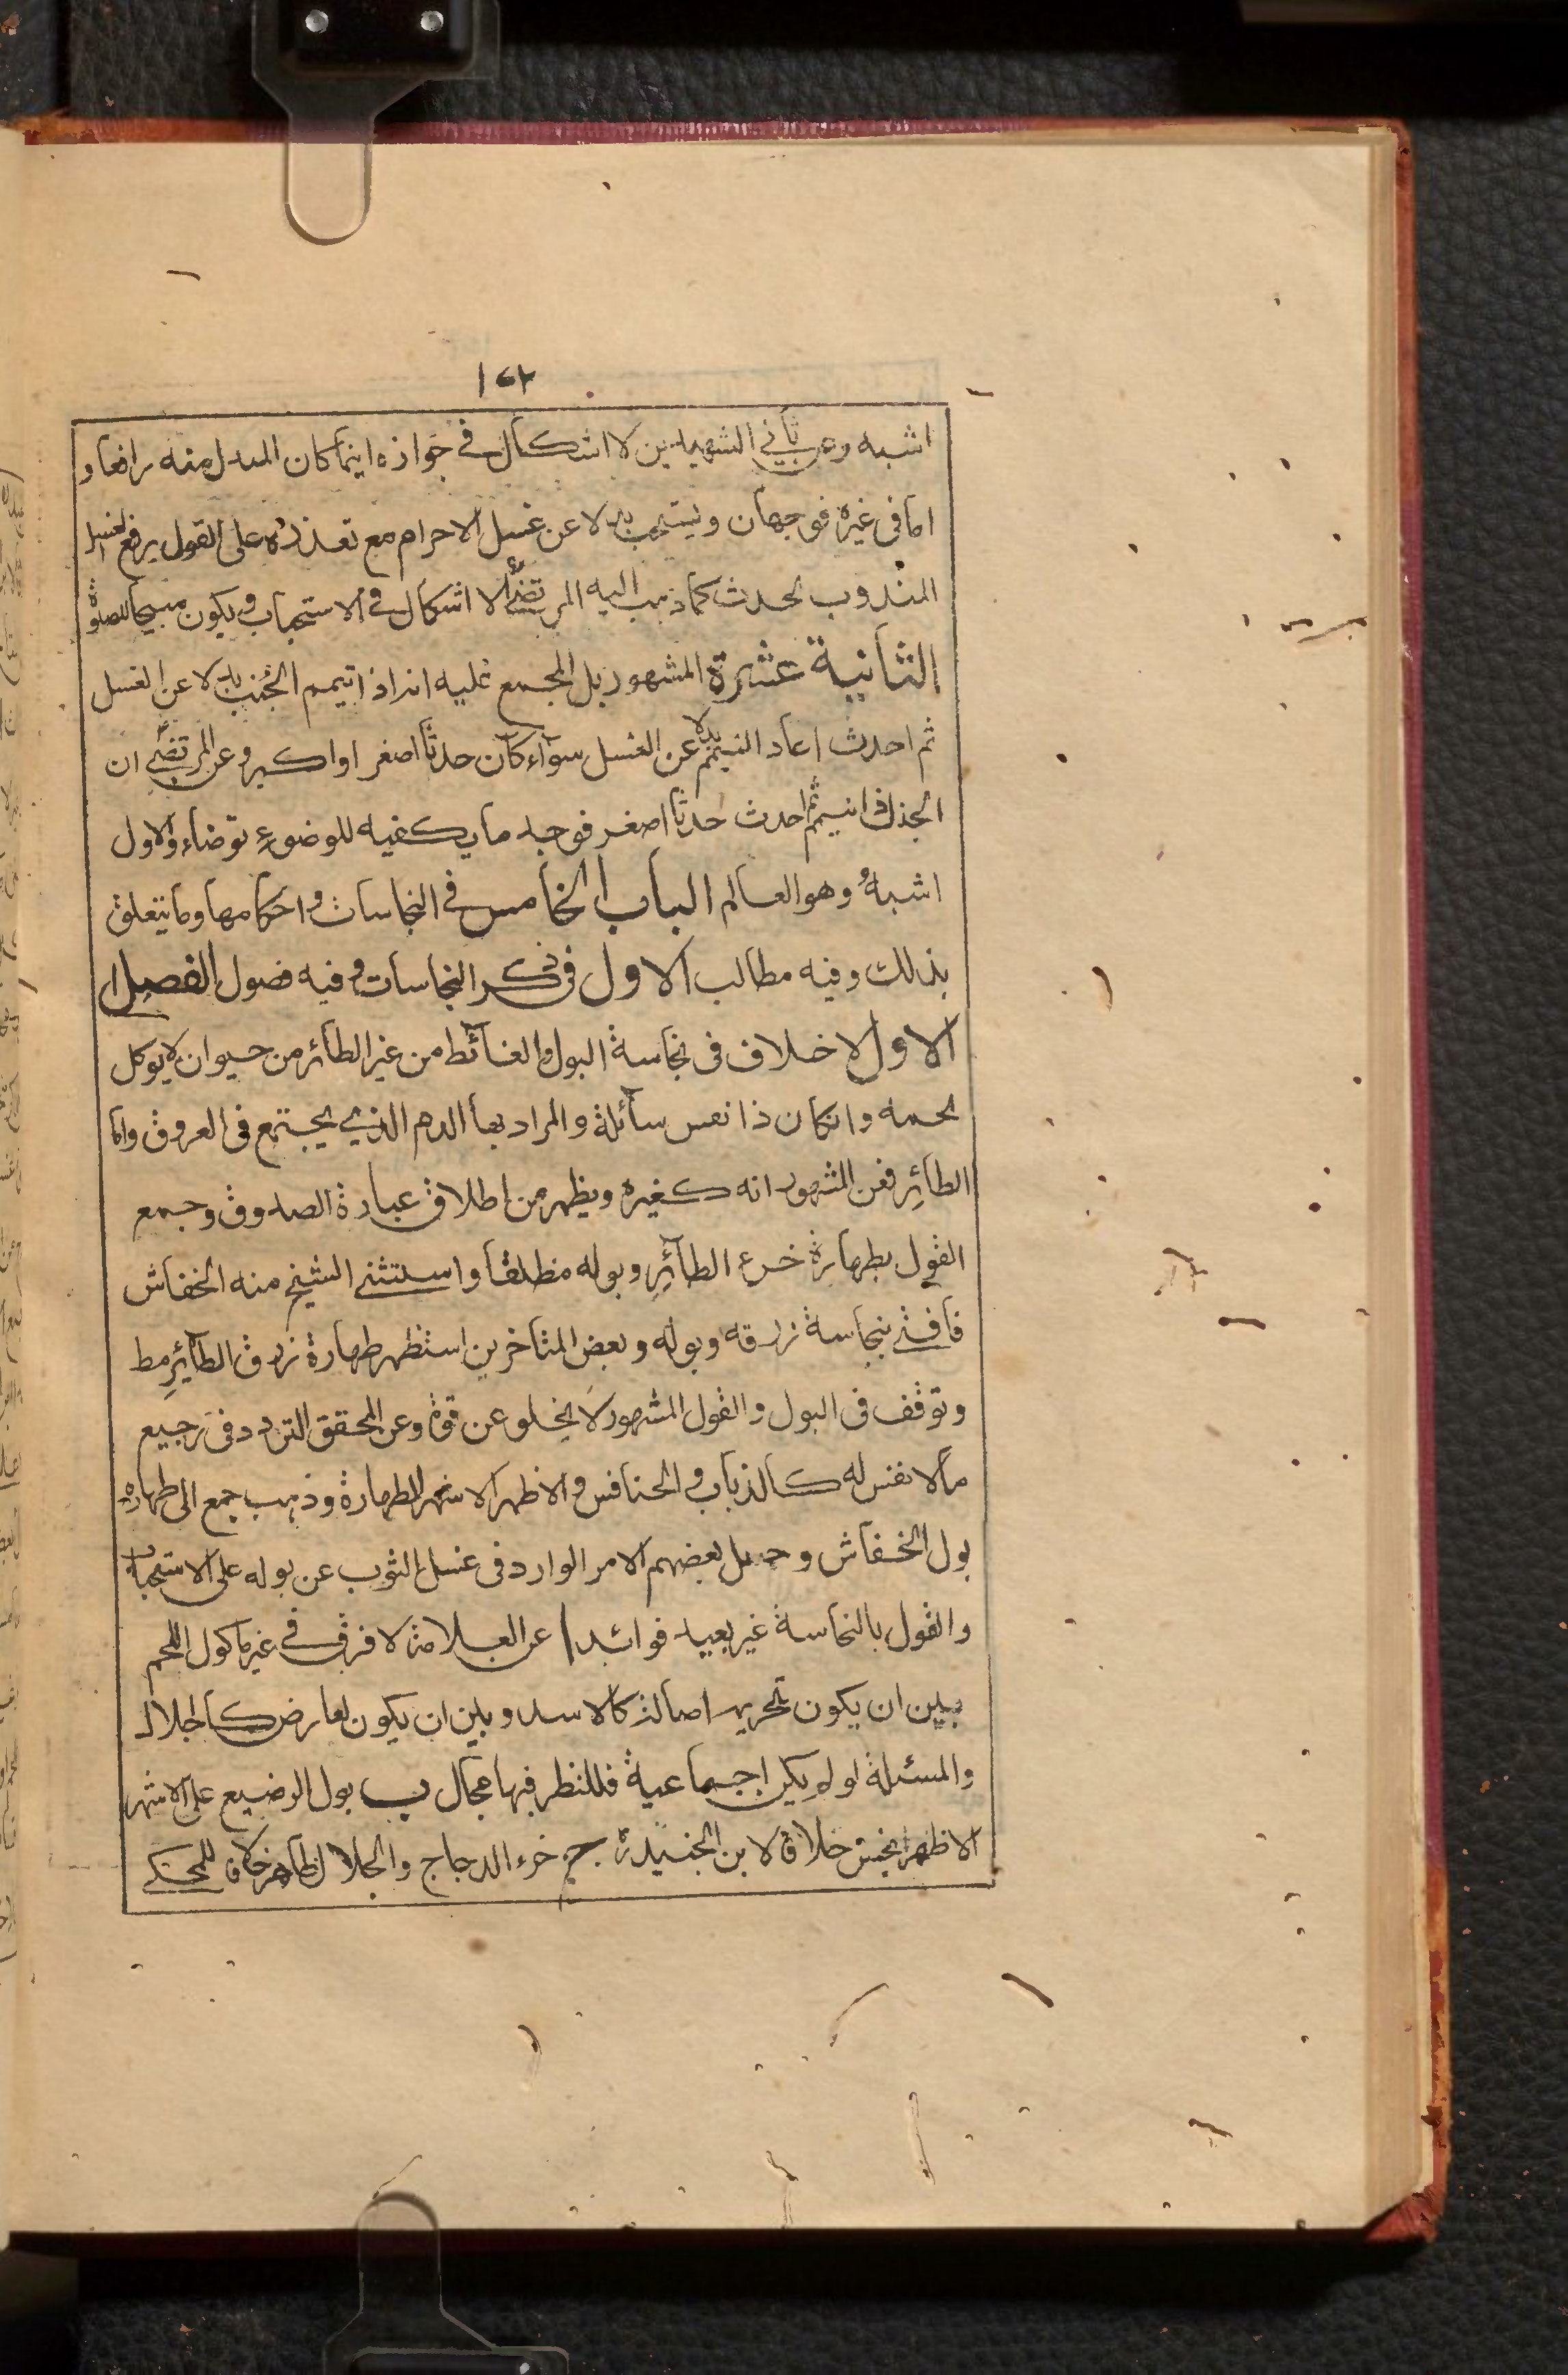 ١٤٢
اشبه وعن ثاني الشهيدين لا اشكال في جوازه اينما كان المبدل منه رافعا و
اما في غيره فوجهان ويستحب بدلا عن غسل الاحرام مع تعذره على القول برفع الغسل
المندوب لحدث كما ذهب اليه المرتضىٰ لا اشكال في الاستحباب ويكون مبيحا للصلوة
الثانية عشرة المشهور بل المجمع عليه انه اذا تيمم الجنب بدلا عن الغسل
ثم احدث اعاد التيمم بدلا عن الغسل سوآء كان حدثا اصغر او اكبر وعن المرتضىٰ ان
الجنب اذا تيمم ثم احدث حدثا اصغر فوجد ما يكفيه للوضوء توضاء والاول
اشبه وهو العالم الباب الخامس في النجاسات واحكامها وما يتعلق
بذلك وفيه مطالب الاول في ذكر النجاسات وفيه فصول الفصل
الاول لا خلاف في نجاسة البول والغائط من غير الطائر من حيوان لا يوكل
لحمه وانكان ذا نفس سائلة والمراد بها الدم الذي يجتمع في العروق واما
الطائر فعن المشهور انه كغيره ويظهر من اطلاق عبارة الصدوق وجمع
القول بطهارة خرء الطائر وبوله مطلقا واستثنى الشيخ منه الخفاش
فافتى بنجاسة زرقه وبوله وبعض المتاخرين استظهر طهارة زرق الطائر مط
وتوقف في البول والقول المشهور لا يخلو عن قوة وعن المحقق التردد في رجيع
ما لا نفس له كالذباب والخنافس والاظهر الاشهر الطهارة وذهب جمع الى طهارة
بول الخفاش وحمل بعضهم الامر الوارد في غسل الثوب عن بوله على الاستحباب
والقول بالنجاسة غير بعيد فوائد ا عن العلامة لا فرق في غير ماكول اللحم
بين ان يكون تحريمه اصالة كالاسد وبين ان يكون لعارض كالجلال
والمسئلة لو لم يكن اجماعية فللنظر فيها مجال ب بول الرضيع على الاشهر
الاظهر نجس خلافا لابن الجنيد ج خرء الدجاج والجلال طاهر خلافا للمحكي